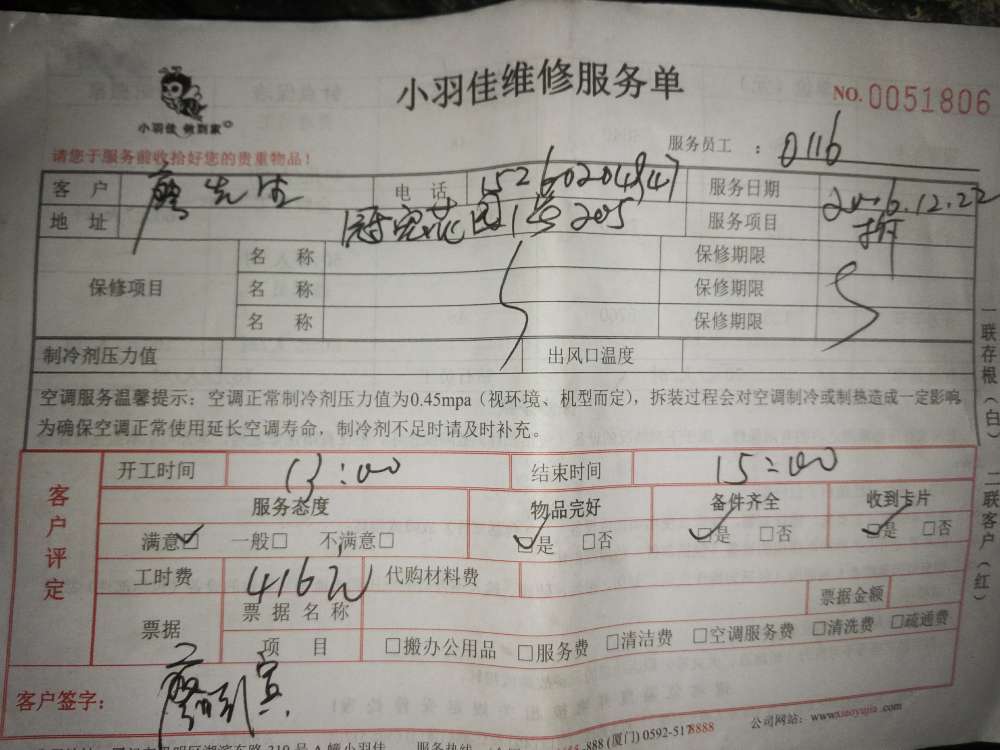 小羽佳维修服务单
NO. 0051806
小羽佳 做到家
请您于服务前收拾好您的贵重物品！
服务员工 ： 0116
客 户 廖先生 电 话 15260204847 服务日期 2016.12.22
地 址 冠宏花园1号205 服务项目 拆
保修项目 名 称 保修期限
名 称 保修期限
名 称 保修期限
制冷剂压力值 出风口温度
空调服务温馨提示：空调正常制冷剂压力值为0.45mpa（视环境、机型而定），拆装过程会对空调制冷或制热造成一定影响
为确保空调正常使用延长空调寿命，制冷剂不足时请及时补充。
一联存根（白） 二联客户（红）
客户评定
开工时间 13:00 结束时间 15:00
服务态度 物品完好 备件齐全 收到卡片
满意□ 一般□ 不满意□ □是 □否 □是 □否 □是 □否
工时费 416元 代购材料费
票据 票 据 名 称 票据金额
项 目 □搬办公用品 □服务费 □清洁费 □空调服务费 □清洗费 □疏通费
客户签字：
公司网站：www.xiaoyujia.com
310号A幢小羽佳 服务热线 -888 (厦门) 0592-5178888